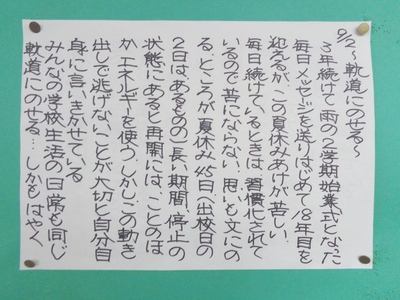 9/2〜軌道にのせる〜
3年続けて雨の2学期始業式となった
毎日メッセージを送りはじめて18年目を
迎えるが、この夏休みあけが苦しい
毎日続けているときは、習慣化されて
いるので苦にならない。思いも文にの
る。ところが夏休み45日(出校日の
2日は、あるものの)長い期間、停止の
状態にあると再開には、ことのほ
かエネルギーを使う。しかし、この動き
出しで逃げないことが大切と自分自
身に言いきかせている
みんなの学校生活の日常も同じ
軌道にのせる…しかもはやく